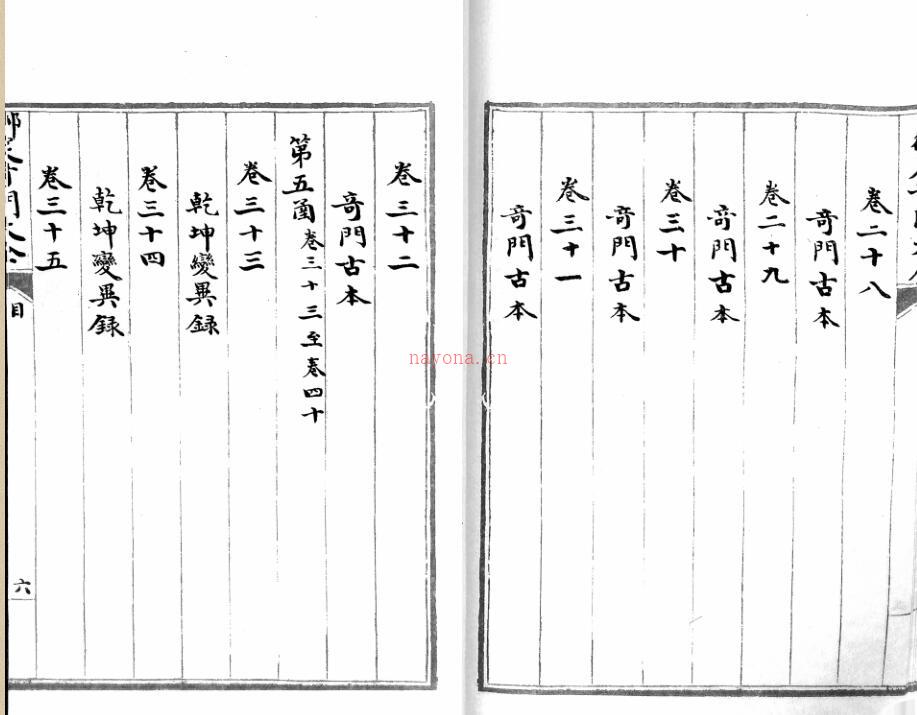 卷二十八
竒門古本
卷二十九
竒門古本
卷三十
竒門古本
卷三十一
竒門古本
卷三十二
竒門古本
第五函 卷三十三至卷四十
卷三十三
乾坤變異録
卷三十四
乾坤變異録
卷三十五
目
六
nayona.cn